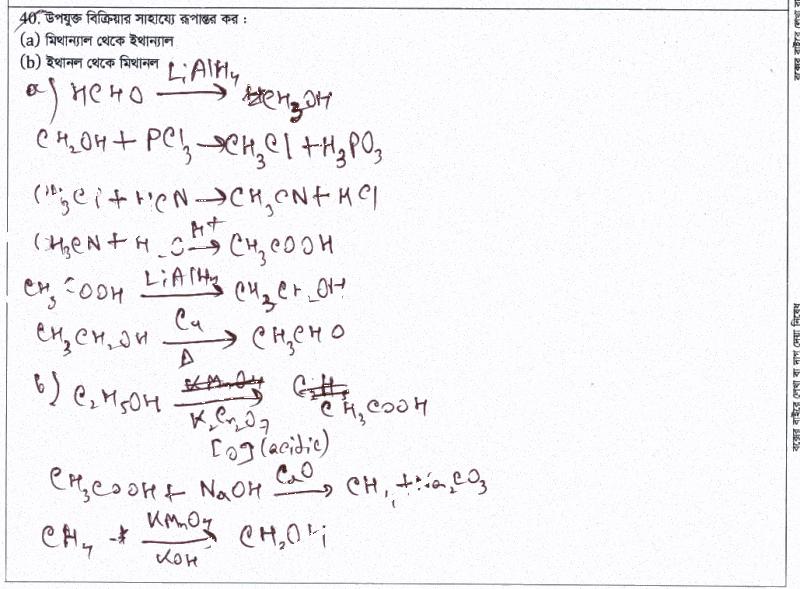 40. উপযুক্ত বিক্রিয়ার সাহায্যে রূপান্তর কর :
(a) মিথান্যাল থেকে ইথান্যাল
(b) ইথানল থেকে মিথানল
a) HCHO —LiAlH4→ CH3OH
CH2OH + PCl3 → CH3Cl + H3PO3
CH3Cl + HCN → CH3CN + HCl
CH3CN + H2O —H+→ CH3COOH
CH3COOH —LiAlH4→ CH3CH2OH
CH3CH2OH —Cu/Δ→ CH3CHO
b) C2H5OH —K2Cr2O7→ CH3COOH
[O] (acidic)
CH3COOH + NaOH —CaO→ CH4 + Na2CO3
CH4 —KMnO4/KOH→ CH2OH